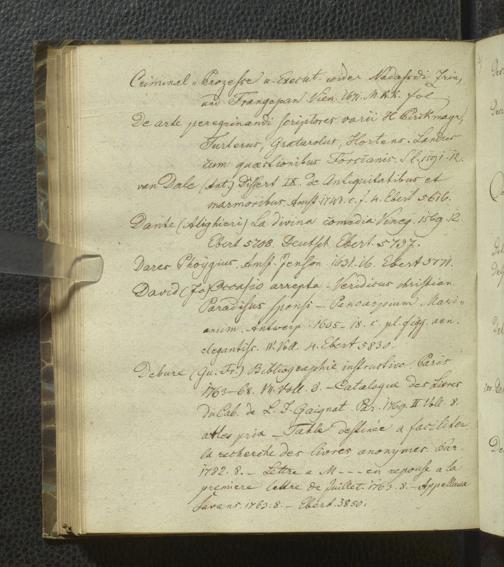 Criminal-Prozesse u. Execut. wider Nadasdi, Zrin,
und Frangepan Vien. 1671. M. K. K. fol.
De arte peregrinandi scriptores varii H. Pirckmayr,
Turlerus, Gratarolus, Hortens. Landus
cum quaestionibus Forcianis. S. l. 1591. 12.
van Dale (Ant.) Dissert. IX. de Antiquitatibus et
marmoribus. Amst. 1743. c. f. 4. Ebert 5616.
Dante (Alighieri) La divina comedia Veneg. 1569. 12.
Ebert 5708. Deutsch Ebert. 5737.
Dares Phrygius. Amst. Jenson 1631. 16. Ebert 5771.
David (Jo.) Occasio arrepta. - Veridicus christian.
Paradisus sponsi - Pancarpium Mari-
anum. Antwerp. 1605-18. c. pl. figg. aen.
elegantiss. IV. Voll. 4. Ebert 5830.
Debure (Gu. Fr.) Bibliographie instructive. Paris
1763-68. VII. Voll. 8. - Catalogue des livres
du Cab. de L. J. Gaignat. Par. 1769. II Voll. 8.
a. les prix - Table destinée a faciliter
la recherche des livres anonymes. Par.
1782. 8. - Lettre a M - - - en reponse a la
premiere lettre de Juillet. 1763. 8. - Appel aux
Savans. 1763. 8. - Ebert. 5850.